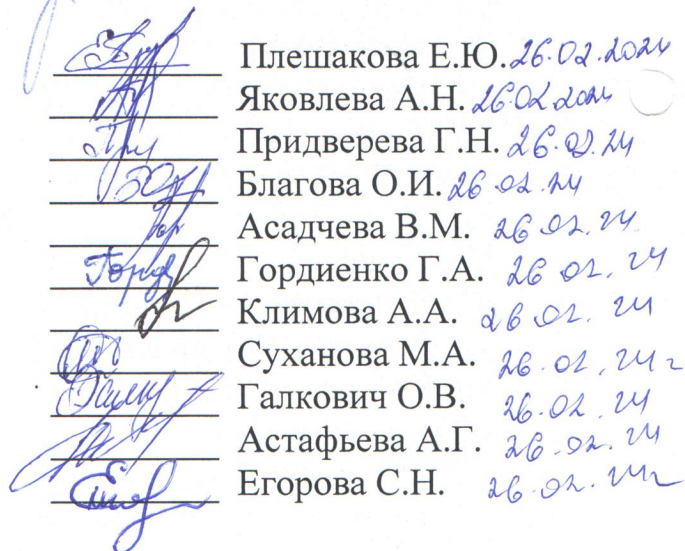 Плешакова Е.Ю. 26.02.2024
Яковлева А.Н. 26.02.2024
Придверева Г.Н. 26.02.24
Благова О.И. 26.02.24
Асадчева В.М. 26.02.24
Гордиенко Г.А. 26.02.24
Климова А.А. 26.02.24
Суханова М.А. 26.02.24г
Галкович О.В. 26.02.24
Астафьева А.Г. 26.02.24
Егорова С.Н. 26.02.24г